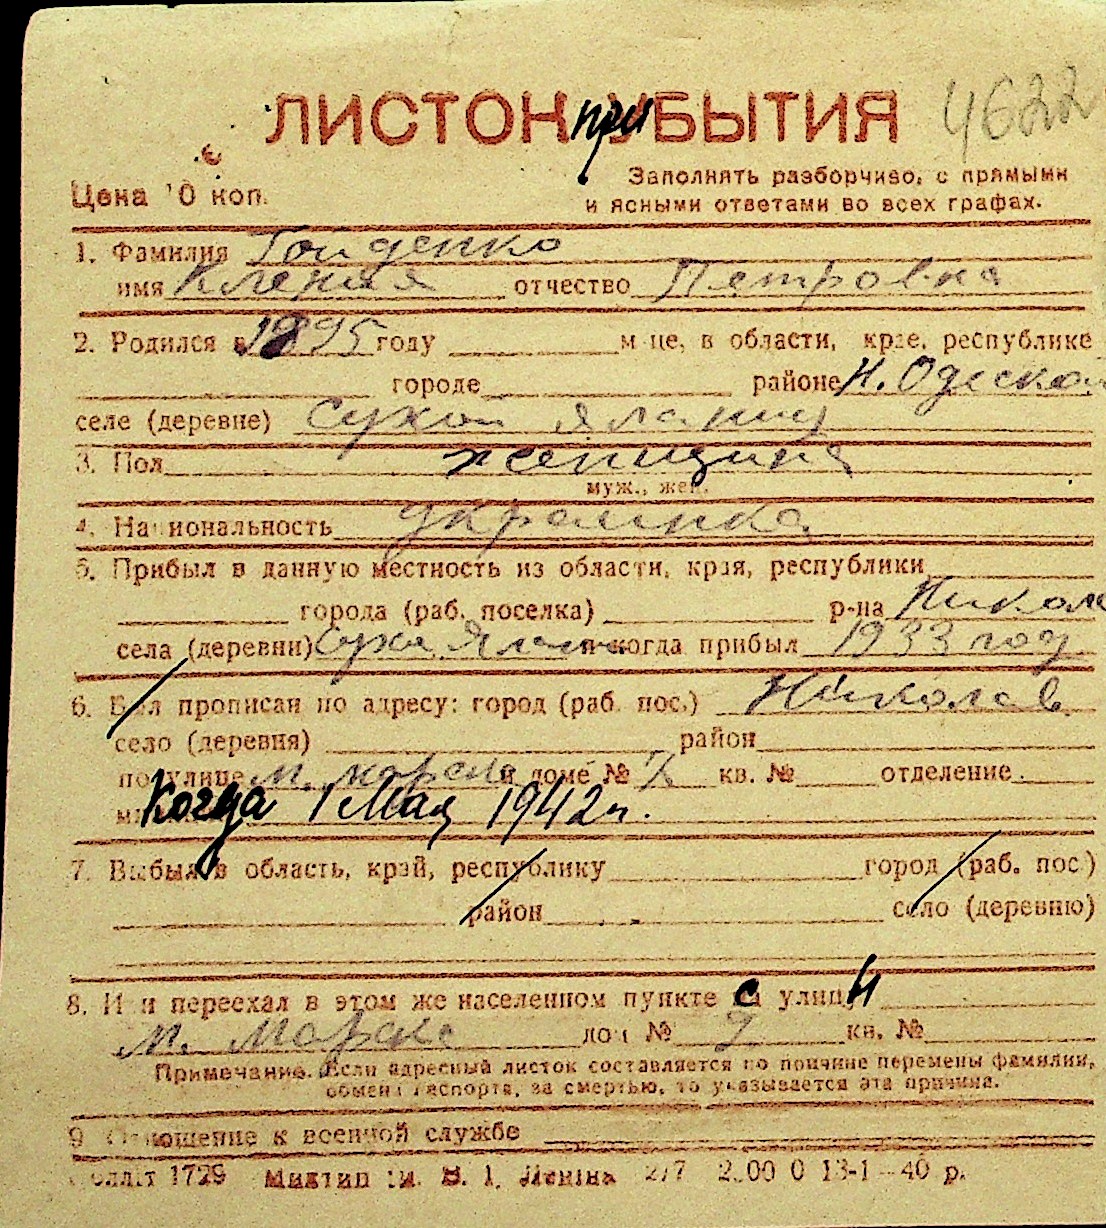 ЛИСТОК при УБЫТИЯ 4622
Цена 10 коп.
Заполнять разборчиво, с прямыми
и ясными ответами во всех графах.
1. Фамилия Гойденко
имя Кления отчество Петровна
2. Родился в 1895 году м-це, в области, крае, республике
городе районе Н. Одеском
селе (деревне) Сухой Яланец
3. Пол женщина
муж., жен.
4. Национальность украинка
5. Прибыл в данную местность из области, края, республики
города (раб. поселка) р-на Никол
села (деревни) Суха Ялан и когда прибыл 1933 год
6. Был прописан по адресу: город (раб. пос.) Николаев
село (деревня) район
по улице М. Морская и доме № 7 кв. № отделение
Когда 1 Мая 1942 г.
7. Выбыл в область, край, республику город (раб. пос.)
район село (деревню)
8. Или переехал в этом же населенном пункте с улицы
М. Морская дом № кв. №
Примечание. Если адресный листок составляется по причине перемены фамилии,
обмена паспорта, за смертью, то указывается эта причина.
9. Отношение к военной службе
1729 Миктип ім. В. І. Леніна 2/7 2.00 0 13-1-40 р.